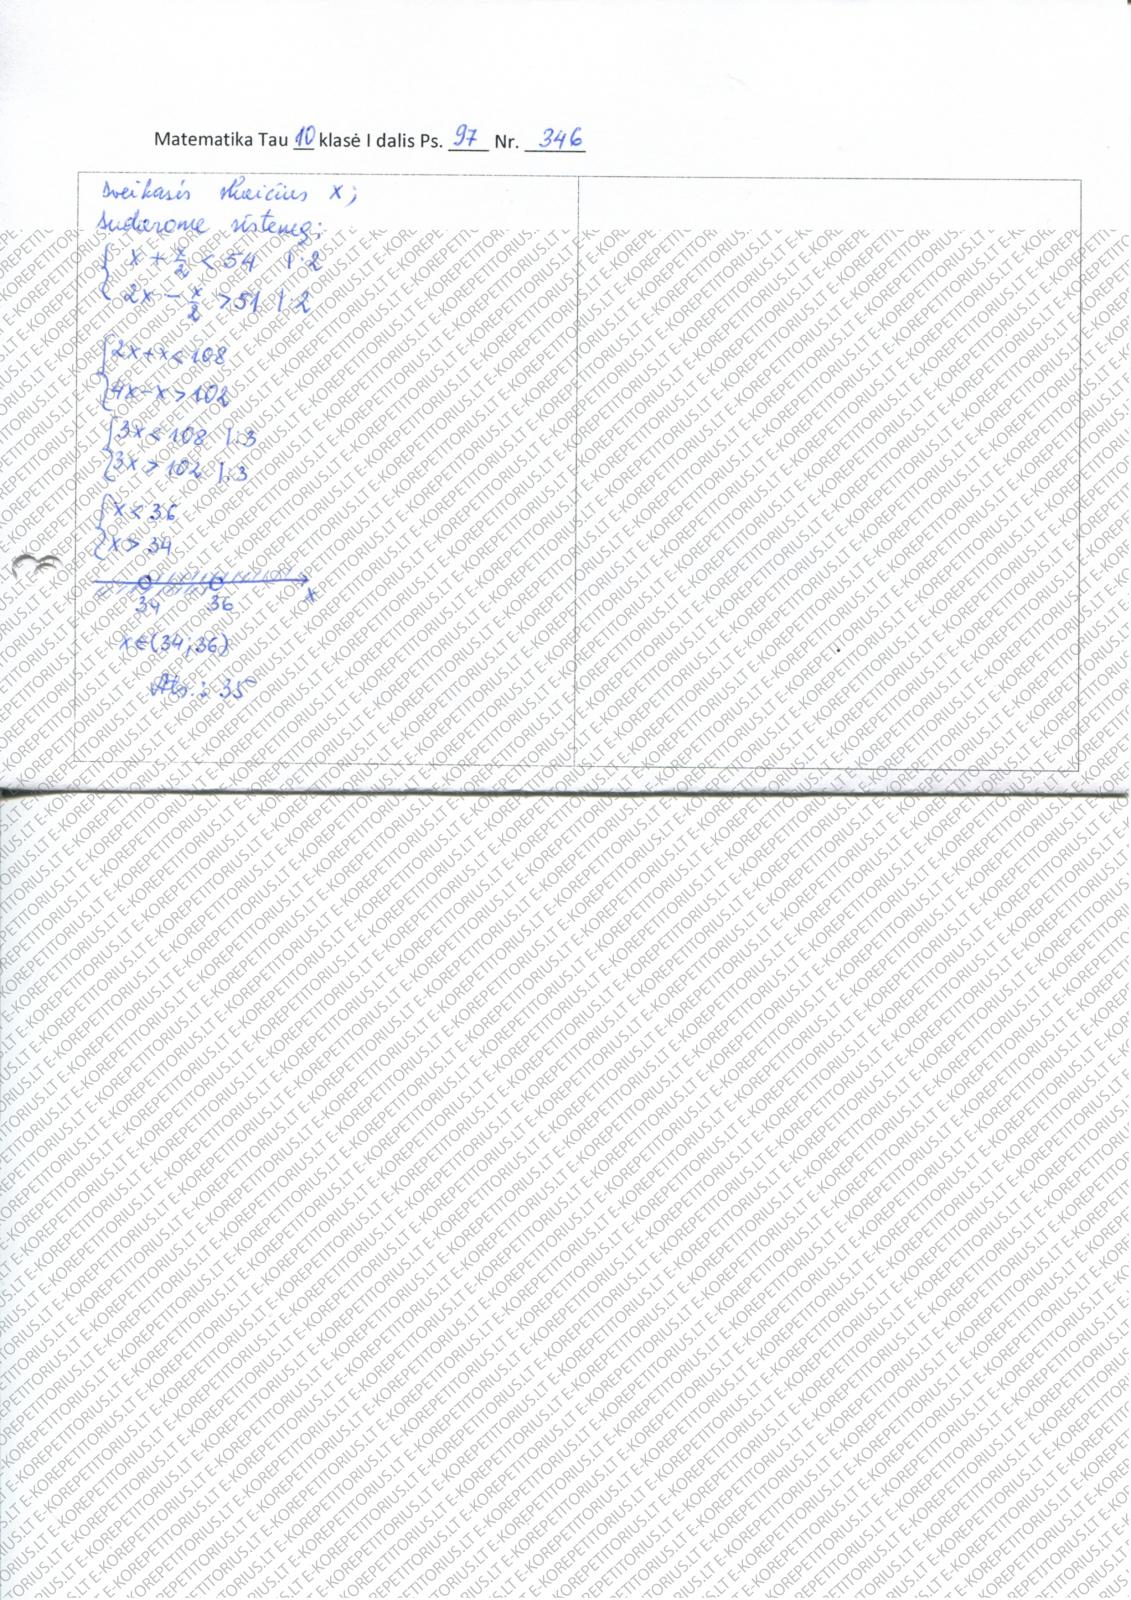 Matematika Tau 10 klasė I dalis Ps. 97 Nr. 346
Sveikasis skaičius x;
Sudarome sistemą:
{ x + x/2 < 54 | · 2
{ 2x − x/2 > 51 | · 2
{ 2x+x < 108
{ 4x−x > 102
{ 3x < 108 | : 3
{ 3x > 102 | : 3
{ x < 36
{ x > 34
34 36 x
x ∈ (34; 36)
Ats.: 35
E-KOREPETITORIUS.LT